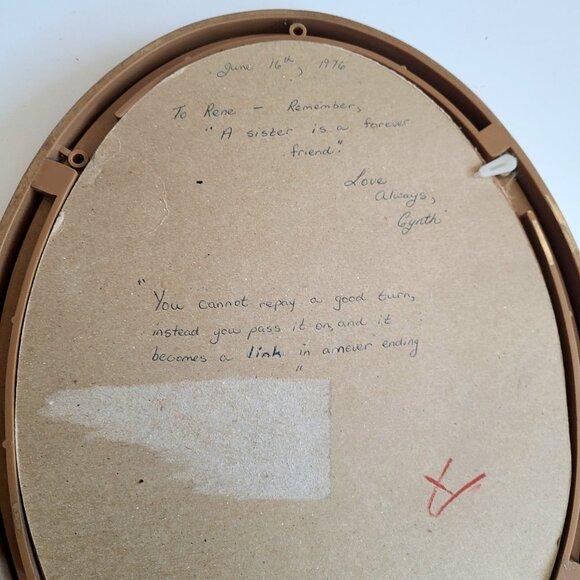 June 16th, 1976
To Rene - Remember,
"A sister is a forever
friend."
Love
Always,
Cynth
"You cannot repay a good turn,
instead you pass it on, and it
becomes a link in a never ending
"